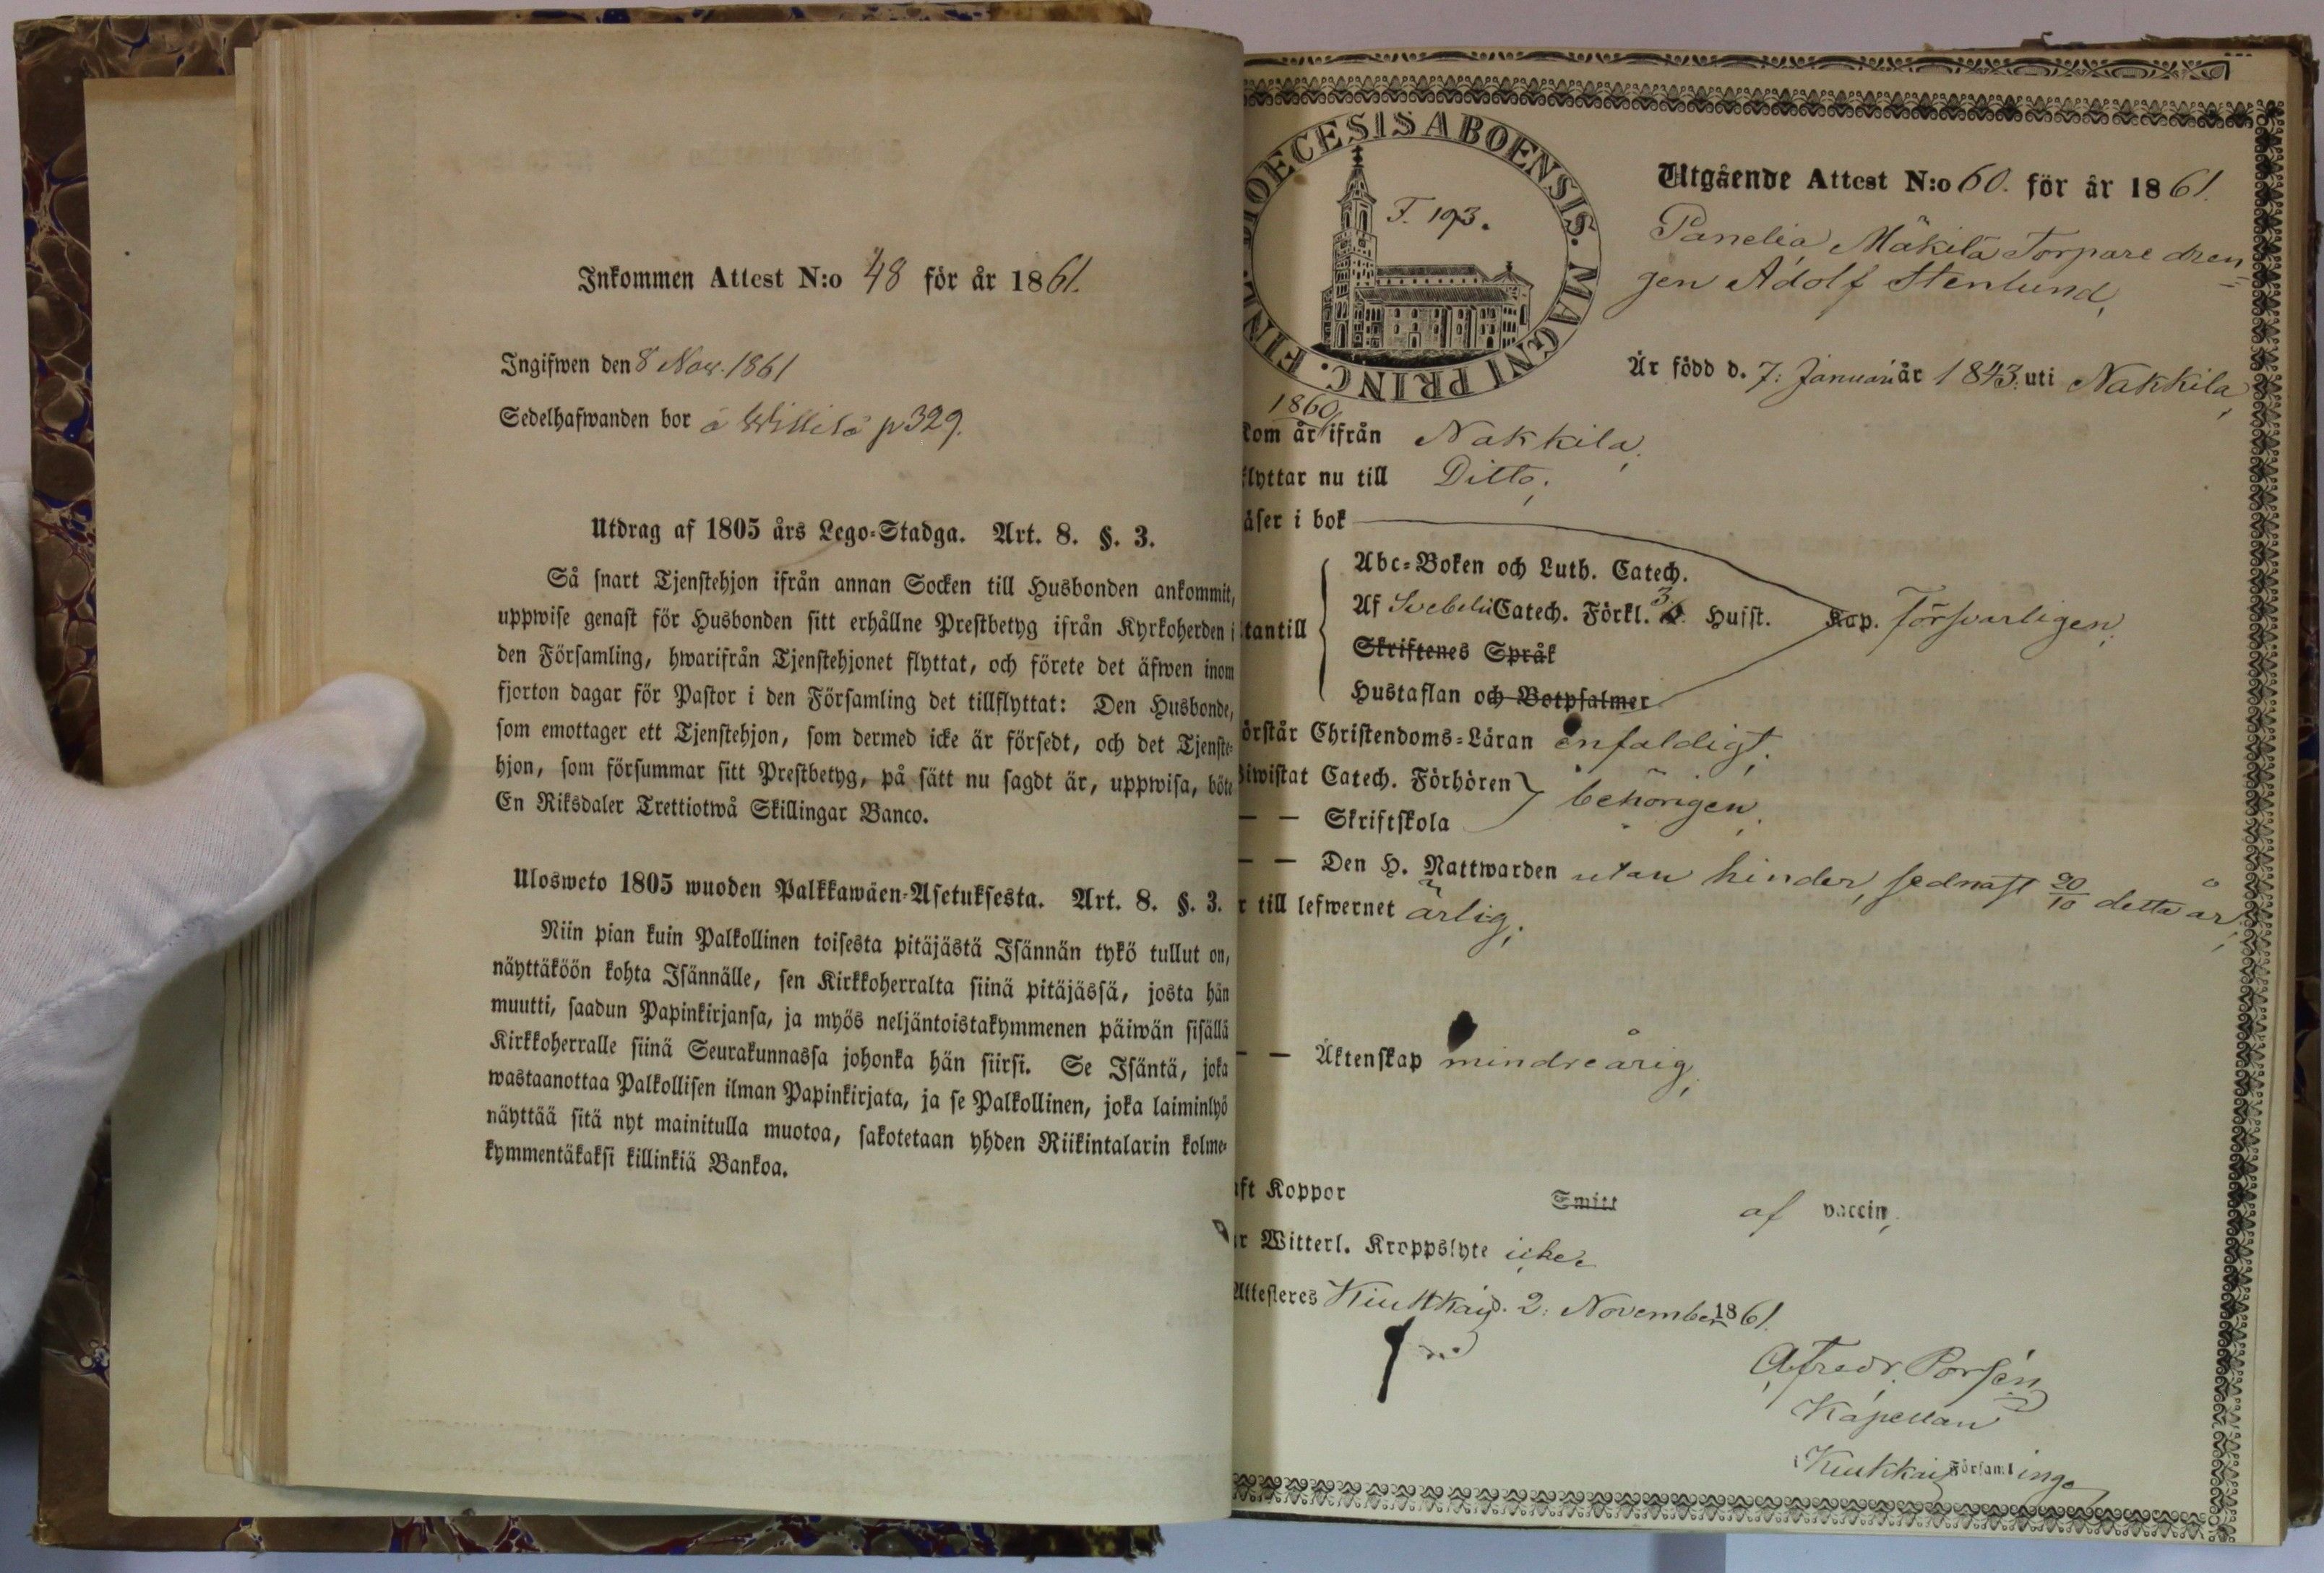 Inkommen Attest N:o 48 för år 1861.
Ingifwen den 8 Nov. 1861
Sedelhafwanden bor å Willilä p 329.
Utdrag af 1805 års Lego-Stadga. Art. 8. §. 3.
Så snart Tjenstehjon ifrån annan Socken till Husbonden ankommit,
uppwise genast för Husbonden sitt erhållne Prestbetyg ifrån Kyrkoherden i
den Församling, hwarifrån Tjenstehjonet flyttat, och förete det äfwen inom
fjorton dagar för Pastor i den Församling det tillflyttat: Den Husbonde,
som emottager ett Tjenstehjon, som dermed icke är försedt, och det Tjenste-
hjon, som försummar sitt Prestbetyg, på sätt nu sagdt är, uppwisa, böte
En Riksdaler Trettiotwå Skillingar Banco.
Ulosweto 1805 wuoden Palkkawäen-Asetuksesta. Art. 8. §. 3.
Niin pian kuin Palkollinen toisesta pitäjästä Isännän tykö tullut on,
näyttäköön kohta Isännälle, sen Kirkkoherralta siinä pitäjässä, josta hän
muutti, saadun Papinkirjansa, ja myös neljäntoistakymmenen päiwän sisällä
Kirkkoherralle siinä Seurakunnassa johonka hän siirsi. Se Isäntä, joka
wastaanottaa Palkollisen ilman Papinkirjata, ja se Palkollinen, joka laiminlyö
näyttää sitä nyt mainitulla muotoa, sakotetaan yhden Riikintalarin kolme-
kymmentäkaksi killinkiä Bankoa.
DIOECESIS ABOENSIS. MAGNI PRINC. FINL.
T. 193.
Utgående Attest N:o 60. för år 1861.
Panelia Mäkilä Torpare dren=
gen Adolf Stenlund,
Är född d. 7: Januari år 1843. uti Nakkila,
1860
kom år ifrån Nakkila,
flyttar nu till Ditto,
äser i bok
Abc-Boken och Luth. Catech.
tantill Af Svebelii Catech. Förkl. 3 Hufst. Kap. försvarligen,
Skriftenes Språk
Hustaflan och Botpsalmer
örstår Christendoms-Läran enfaldigt,
iwistat Catech. Förhören behörigen,
— — Skriftskola
— — Den H. Nattwarden utan hinder, sednast 20/10 detta år,
r till lefwernet ärlig,
— — Äktenskap minderårig,
ft Koppor Smitt af vaccin,
r Witterl. Kroppslyte icke.
Attesteres Kiukkais d. 2: November 1861.
Alfredr. Porsén
Kapellan
i Kiukkais Församlinga